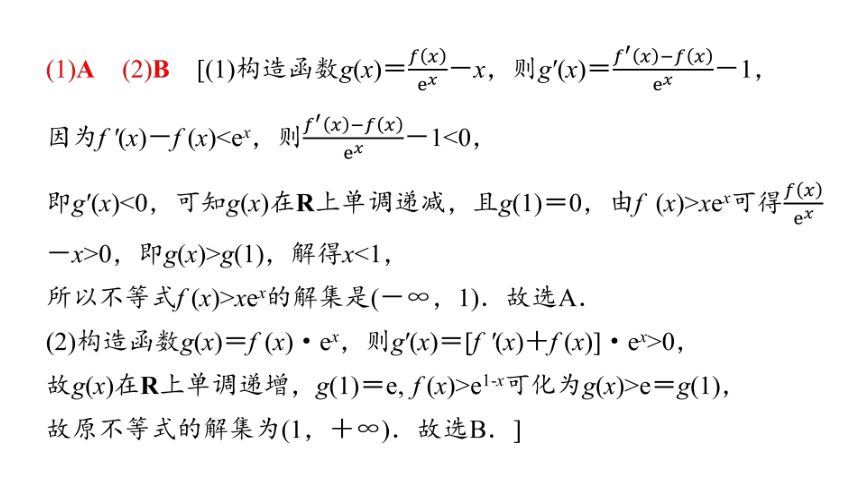 (1)A (2)B [(1)构造函数g(x)=\frac{f(x)}{e^x}-x，则g′(x)=\frac{f′(x)-f(x)}{e^x}-1，
因为f′(x)-f(x)<e^x，则\frac{f′(x)-f(x)}{e^x}-1<0，
即g′(x)<0，可知g(x)在R上单调递减，且g(1)=0，由f (x)>xe^x可得\frac{f(x)}{e^x}
-x>0，即g(x)>g(1)，解得x<1，
所以不等式f(x)>xe^x的解集是(-∞，1)．故选A．
(2)构造函数g(x)=f(x)·e^x，则g′(x)=[f′(x)+f(x)]·e^x>0，
故g(x)在R上单调递增，g(1)=e, f(x)>e^{1-x}可化为g(x)>e=g(1)，
故原不等式的解集为(1，+∞)．故选B．]